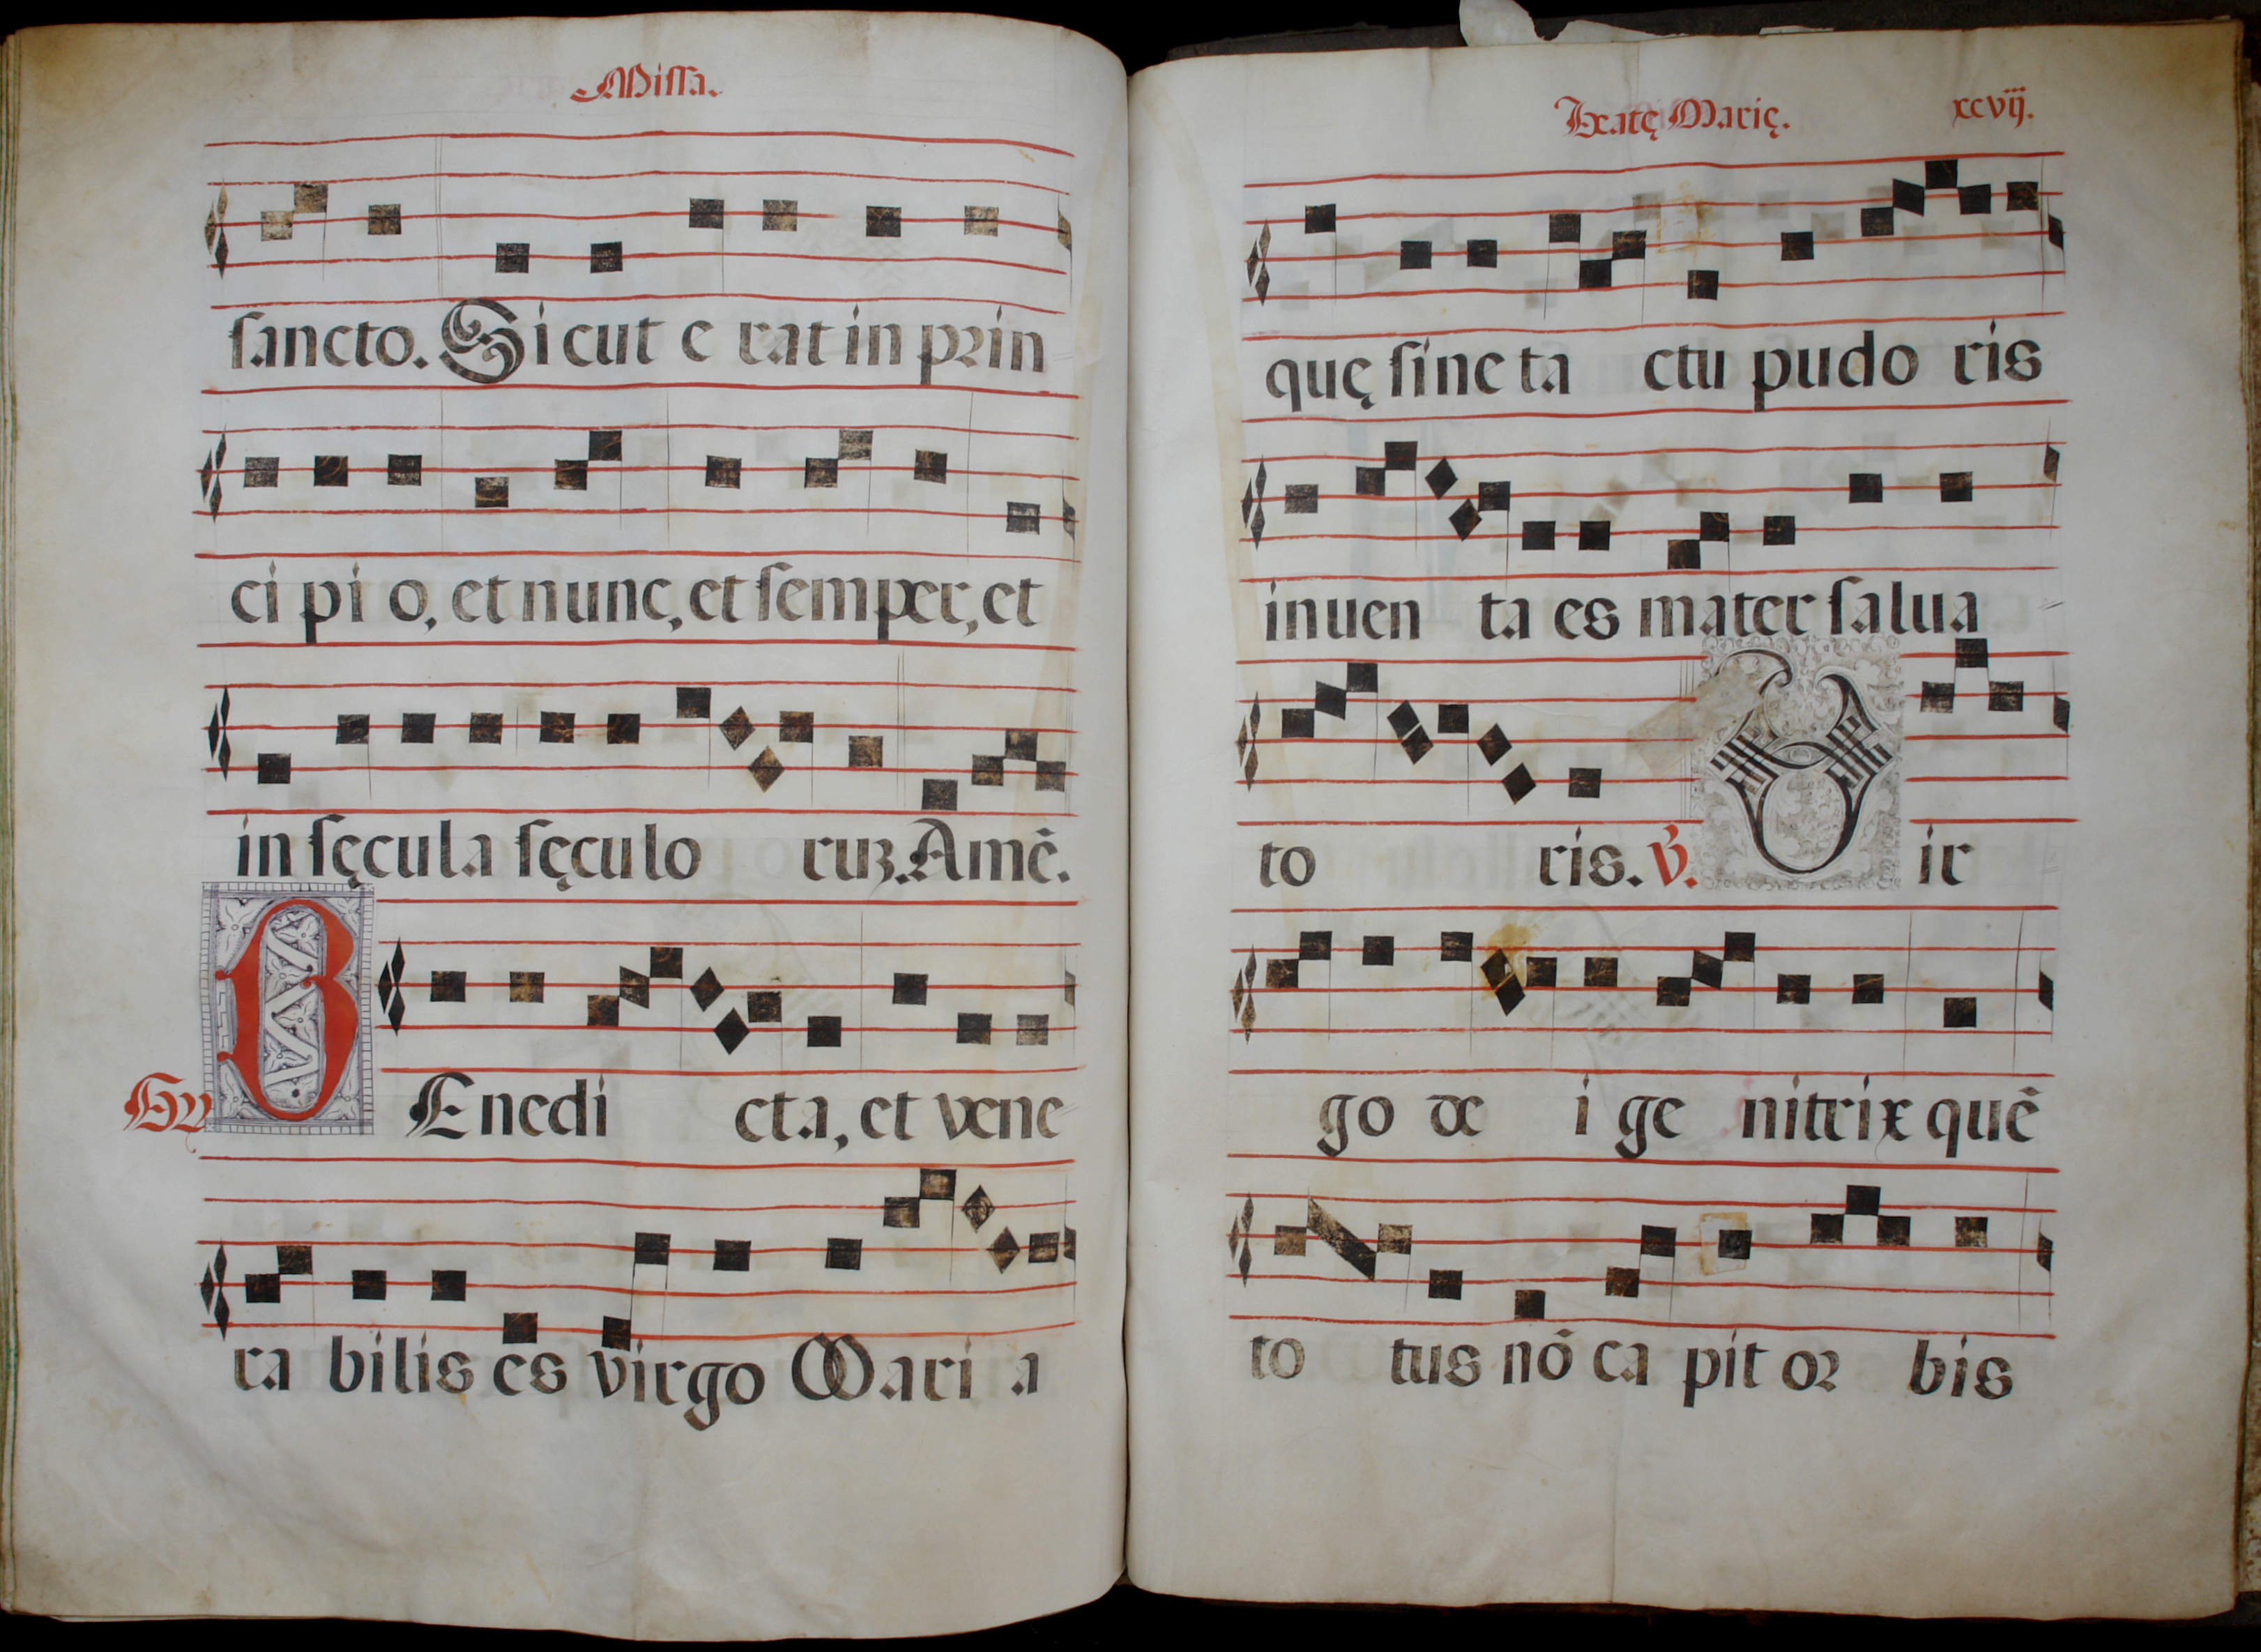 Missa.
sancto. Sicut e rat in prin
ci pi o, et nunc, et semper, et
in sęcula sęculo ruz. Amē.
BEnedi cta, et vene
ra bilis es virgo Mari a
Beatę Marię. xcvij.
quę sine ta ctu pudo ris
inuen ta es mater salua
to ris. V. Vir
go de i ge nitrix quē
to tus nō ca pit or bis